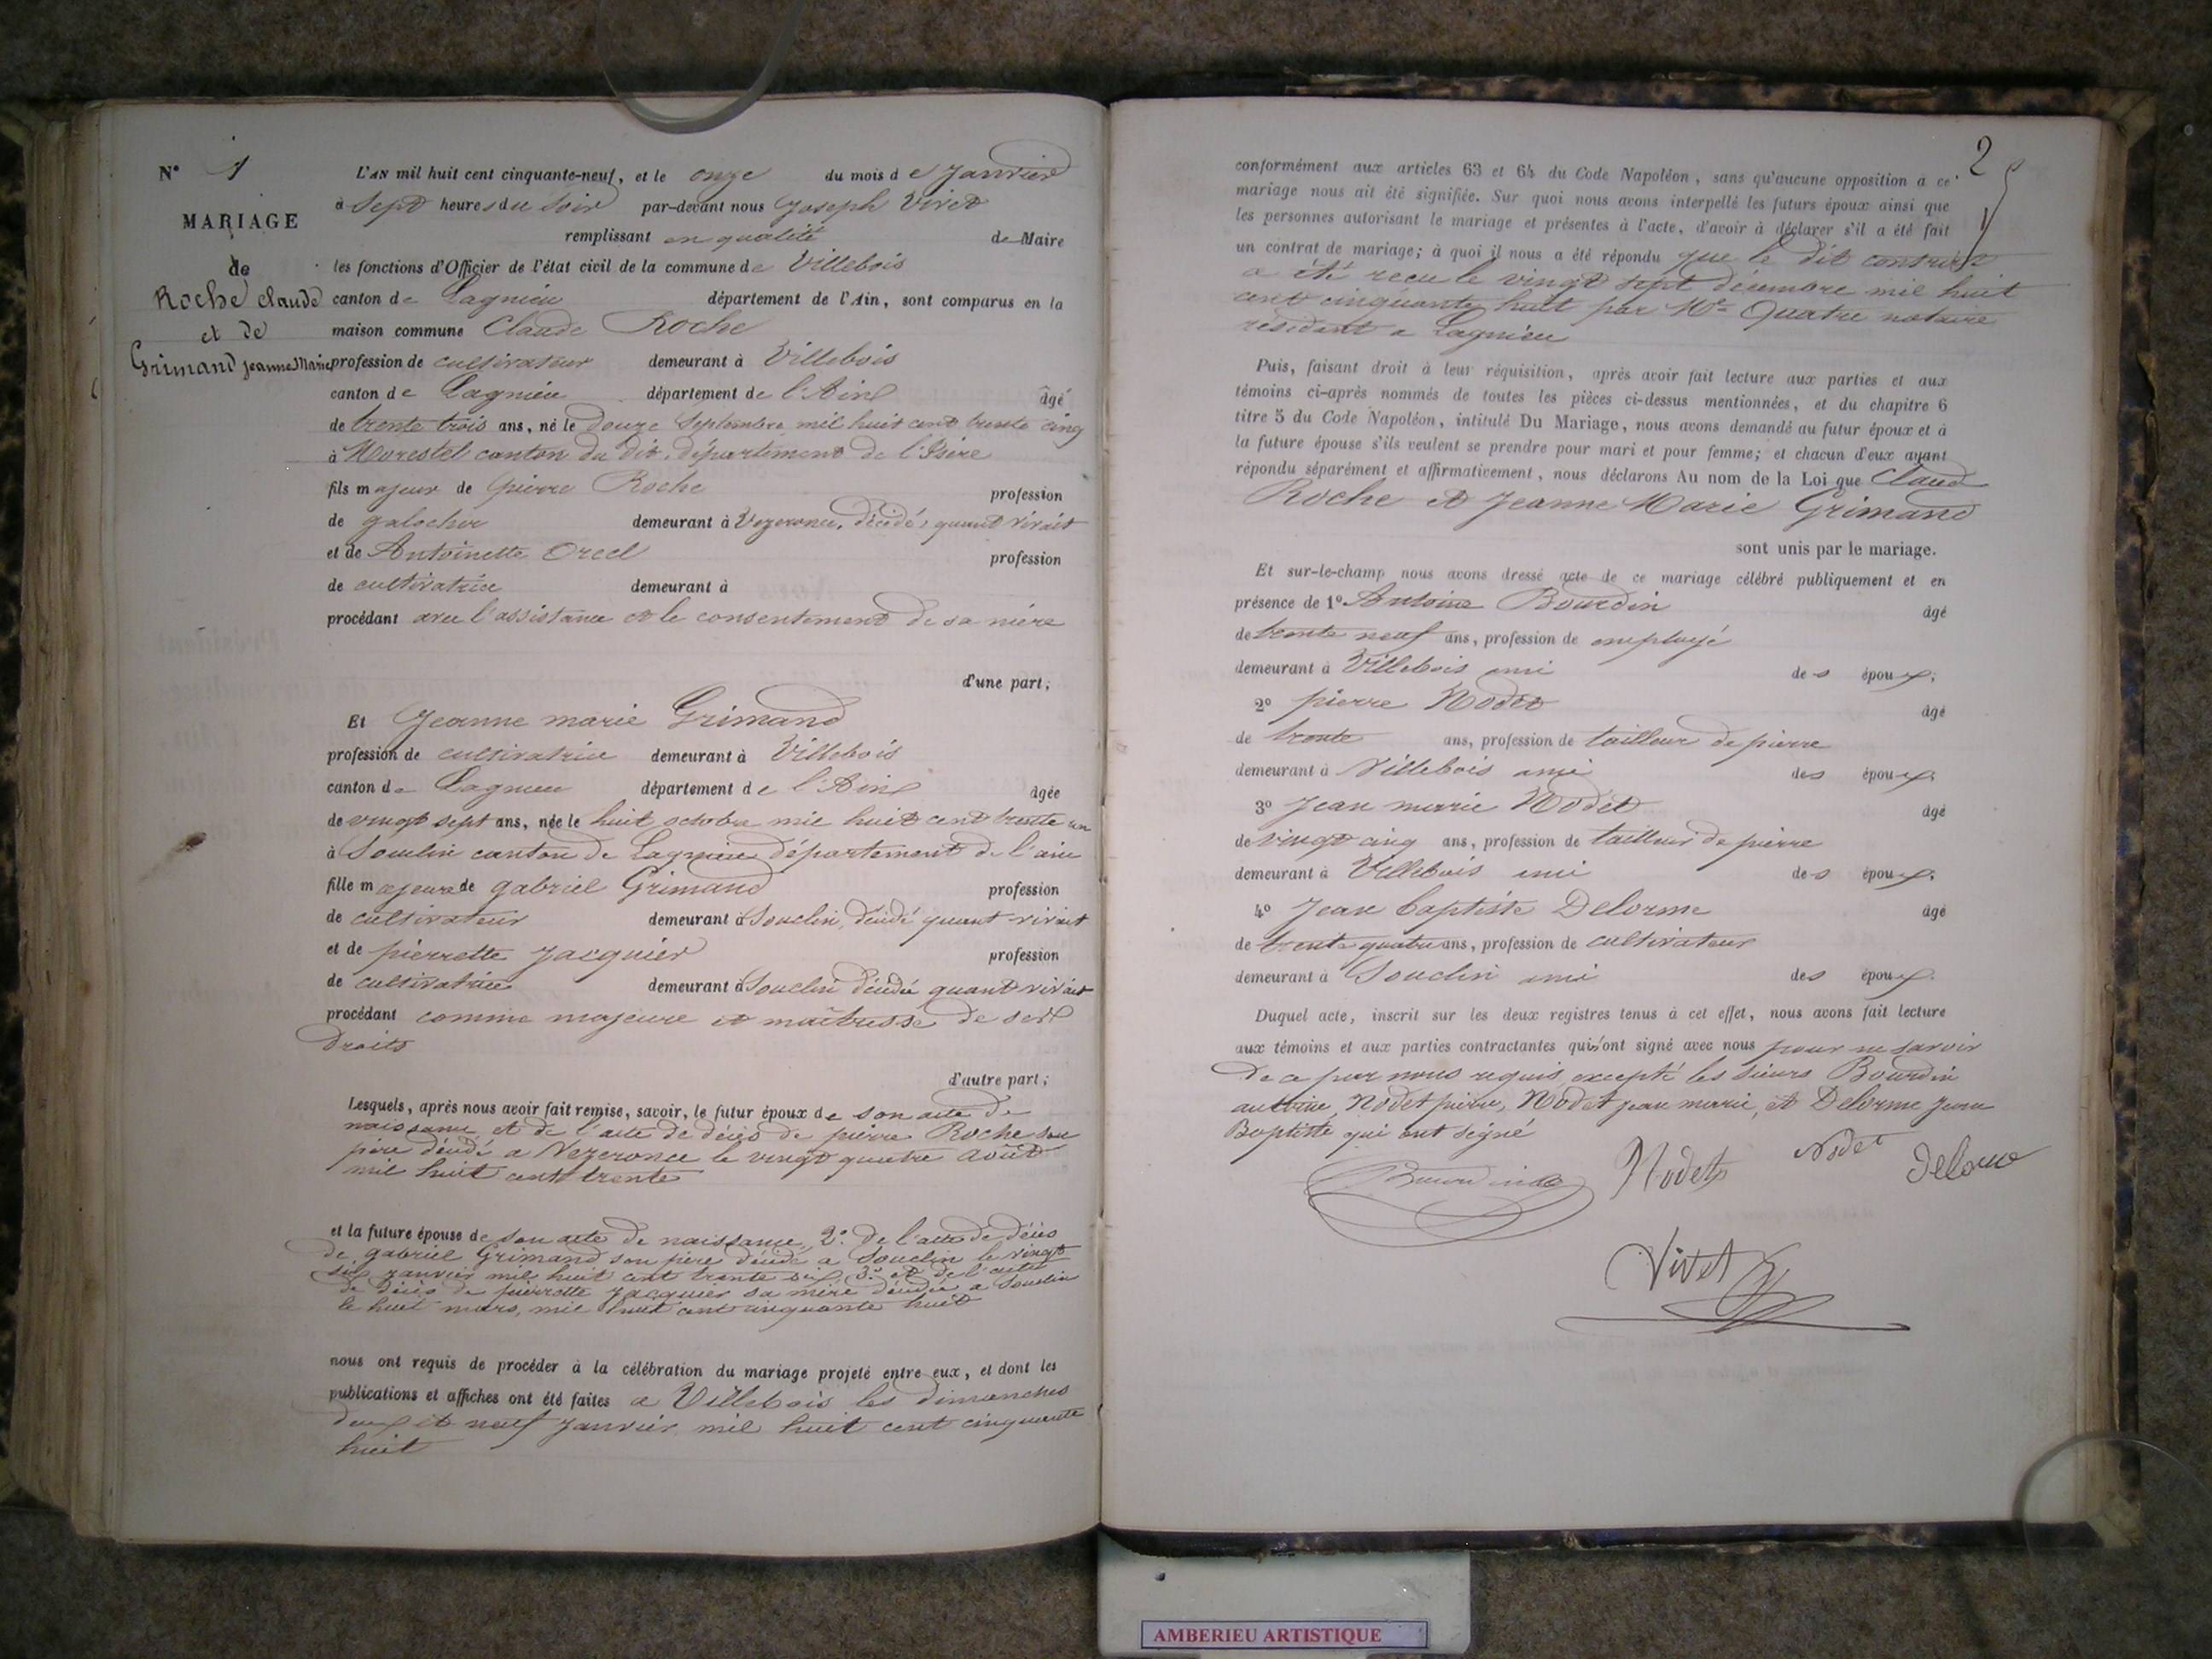 N° 1
MARIAGE
de
Roche Claude
et de
Grimand Jeanne Marie
L'AN mil huit cent cinquante-neuf, et le onze du mois de Janvier
à Sept heures du Soir par-devant nous Joseph Vivet
remplissant en qualité de Maire
les fonctions d'Officier de l'état civil de la commune de Villebois
canton de Lagnieu département de l'Ain, sont comparus en la
maison commune Claude Roche
profession de cultivateur demeurant à Villebois
canton de Lagnieu département de l'Ain âgé
de trente trois ans, né le Douze Septembre mil huit cent trente cinq
à Morestel canton du dit, département de l'Isère
fils majeur de Pierre Roche profession
de galocher demeurant à Vezeronce, décédé, quant vivait
et de Antoinette Orcel profession
de cultivatrice demeurant à
procédant avec l'assistance et le consentement de sa mère
d'une part;
Et Jeanne marie Grimand
profession de cultivatrice demeurant à Villebois
canton de Lagnieu département de l'Ain âgée
de vingt sept ans, née le huit octobre mil huit cent trente un
à Souclin canton de Lagnieu département de l'ain
fille majeure de gabriel Grimand profession
de cultivateur demeurant à Souclin, décédé quant vivait
et de pierrette Jacquier profession
de cultivatrice demeurant à Souclin décédée quant vivait
procédant comme majeure et maîtresse de ses
droits
d'autre part;
Lesquels, après nous avoir fait remise, savoir, le futur époux de son acte de
naissance et de l'acte de décès de pierre Roche son
père décédé a Vezeronce le vingt quatre août
mil huit cent trente
et la future épouse de son acte de naissance, 2° de l'acte de décès
de gabriel Grimand son père décédé a Souclin le vingt
six janvier mil huit cent trente six 3° et de l'acte
de décès de pierrette Jacquier sa mère décédée a Souclin
le huit mars, mil huit cent cinquante huit
nous ont requis de procéder à la célébration du mariage projeté entre eux, et dont les
publications et affiches ont été faites a Villebois les dimanches
deux et neuf Janvier mil huit cent cinquante
huit
2
conformément aux articles 63 et 64 du Code Napoléon, sans qu'aucune opposition à ce
mariage nous ait été signifiée. Sur quoi nous avons interpellé les futurs époux ainsi que
les personnes autorisant le mariage et présentes à l'acte, d'avoir à déclarer s'il a été fait
un contrat de mariage; à quoi il nous a été répondu que le dit contrat
a été recu le vingt sept décembre mil huit
cent cinquante huit par Me Quatre notaire
résidant a Lagnieu
Puis, faisant droit à leur réquisition, après avoir fait lecture aux parties et aux
témoins ci-après nommés de toutes les pièces ci-dessus mentionnées, et du chapitre 6
titre 5 du Code Napoléon, intitulé Du Mariage, nous avons demandé au futur époux et à
la future épouse s'ils veulent se prendre pour mari et pour femme; et chacun d'eux ayant
répondu séparément et affirmativement, nous déclarons Au nom de la Loi que Claud
Roche et Jeanne Marie Grimand
sont unis par le mariage.
Et sur-le-champ nous avons dressé acte de ce mariage célébré publiquement et en
présence de 1° Antoine Bourdin âgé
de trente neuf ans, profession de employé
demeurant à Villebois ami des époux;
2° pierre Nodet âgé
de trente ans, profession de tailleur de pierre
demeurant à Villebois ami des époux;
3° Jean marie Nodet âgé
de vingt cinq ans, profession de tailleur de pierre
demeurant à Villebois ami des époux;
4° Jean baptiste Delorme âgé
de trente quatre ans, profession de cultivateur
demeurant à Souclin ami des époux.
Duquel acte, inscrit sur les deux registres tenus à cet effet, nous avons fait lecture
aux témoins et aux parties contractantes qui ont signé avec nous pour ne savoir
de ce par nous requis excepté les sieurs Bourdin
antoine, Nodet pierre, Nodet jean marie, et Delorme Jean
Baptiste qui ont signé
Bourdin Nodet Nodet Delorme
Vivet
AMBERIEU ARTISTIQUE